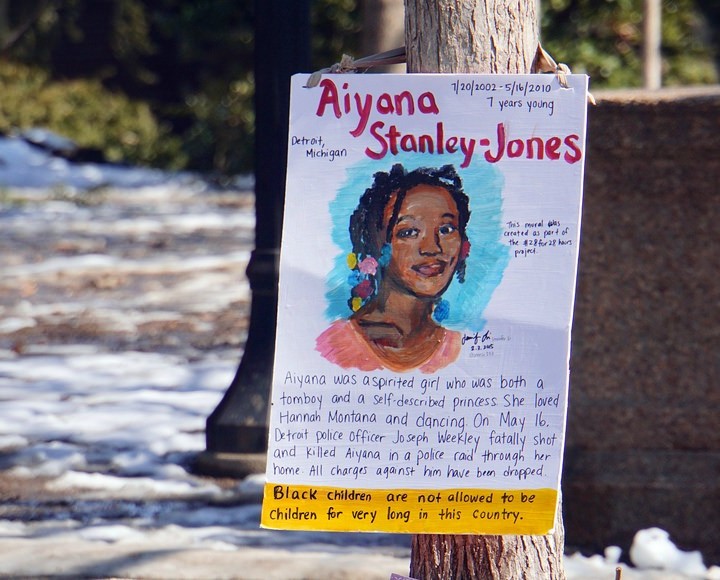 7/20/2002 - 5/16/2010
7 years young
Aiyana
Stanley-Jones
Detroit,
Michigan
This mural was
created as part of
the #28for28 hours
project.
2.2.2015
Aiyana was a spirited girl who was both a
tomboy and a self-described princess. She loved
Hannah Montana and dancing. On May 16,
Detroit police officer Joseph Weekley fatally shot
and killed Aiyana in a police raid through her
home. All charges against him have been dropped.
Black children are not allowed to be
children for very long in this country.